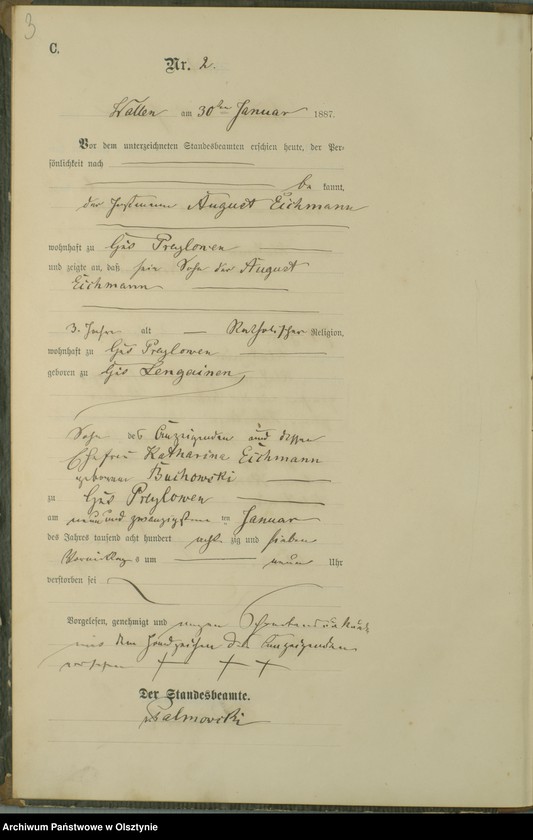 3
C.
Nr. 2.
Wallen am 30ten Januar 1887.
Vor dem unterzeichneten Standesbeamten erschien heute, der Per-
sönlichkeit nach
be kannt,
der August Eichmann
wohnhaft zu Gut Praylowen
und zeigte an, daß sein Sohn der August
Eichmann
3. Jahre alt Katholischer Religion,
wohnhaft zu Gut Praylowen
geboren zu Gut Lengainen
Sohn des Anzeigenden und dessen
Ehefrau Katharina Eichmann
geborenen Buchowski
zu Gut Praylowen
am neun und zwanzigsten ten Januar
des Jahres tausend acht hundert acht zig und sieben
Vormittags um neun Uhr
verstorben sei
Vorgelesen, genehmigt und wegen Schreibensunkunde
mit dem Handzeichen des Anzeigenden
versehen + + +
Der Standesbeamte.
Palmowski
Archiwum Państwowe w Olsztynie